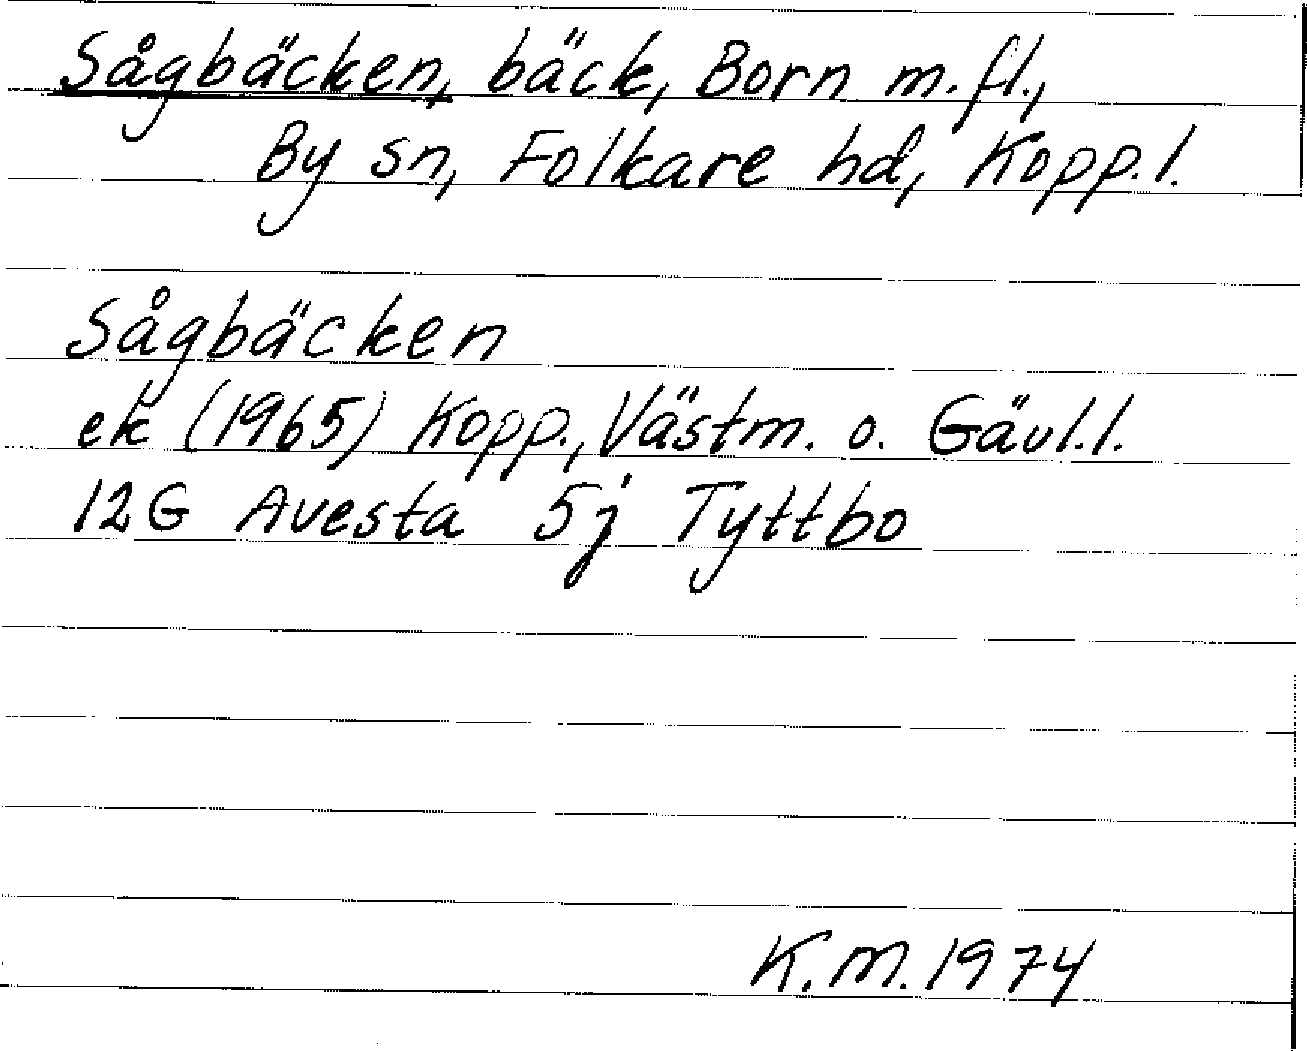 Sågbäcken, bäck, Born m.fl.,
By sn, Folkare hd, Kopp.l.
Sågbäcken
ek (1965) Kopp., Västm. o. Gävl.l.
12G Avesta 5j Tyttbo
K.M. 1974